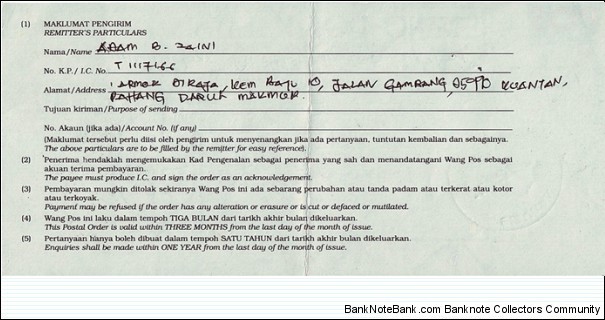 (1) MAKLUMAT PENGIRIM
REMITTER'S PARTICULARS
Nama/Name ADAM B. ZAINI
No. K.P./I.C. No. T 1117466
Alamat/Address 1 ARMOR DIRAJA, KEM BATU 10, JALAN GAMBANG, 25990 KUANTAN,
PAHANG DARUL MAKMUR.
Tujuan kiriman/Purpose of sending
No. Akaun (jika ada)/Account No. (if any)
(Maklumat tersebut perlu diisi oleh pengirim untuk menyenangkan jika ada pertanyaan, tuntutan kembalian dan sebagainya.
The above particulars are to be filled by the remitter for easy reference).
(2) Penerima hendaklah mengemukakan Kad Pengenalan sebagai penerima yang sah dan menandatangani Wang Pos sebagai
akuan terima pembayaran.
The payee must produce I.C. and sign the order as an acknowledgement.
(3) Pembayaran mungkin ditolak sekiranya Wang Pos ini ada sebarang perubahan atau tanda padam atau terkerat atau kotor
atau terkoyak.
Payment may be refused if the order has any alteration or erasure or is cut or defaced or mutilated.
(4) Wang Pos ini laku dalam tempoh TIGA BULAN dari tarikh akhir bulan dikeluarkan.
This Postal Order is valid within THREE MONTHS from the last day of the month of issue.
(5) Pertanyaan hanya boleh dibuat dalam tempoh SATU TAHUN dari tarikh akhir bulan dikeluarkan.
Enquiries shall be made within ONE YEAR from the last day of the month of issue.
BankNoteBank.com - Banknote Collectors Community